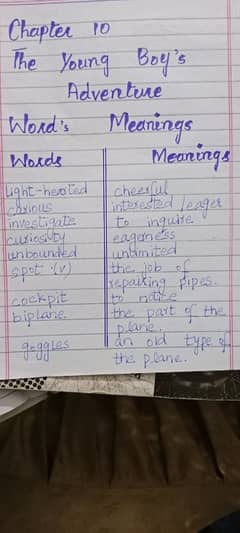 Chapter 10
The Young Boy's
Adventure
Word's Meanings
Words Meanings
light-hearted cheerful
curious interested/eager
investigate to inquire
curiosity eagerness
unbounded unlimited
spot (v) the job of
repairing pipes.
cockpit to notice
biplane the part of the
plane.
goggles an old type of
the plane.